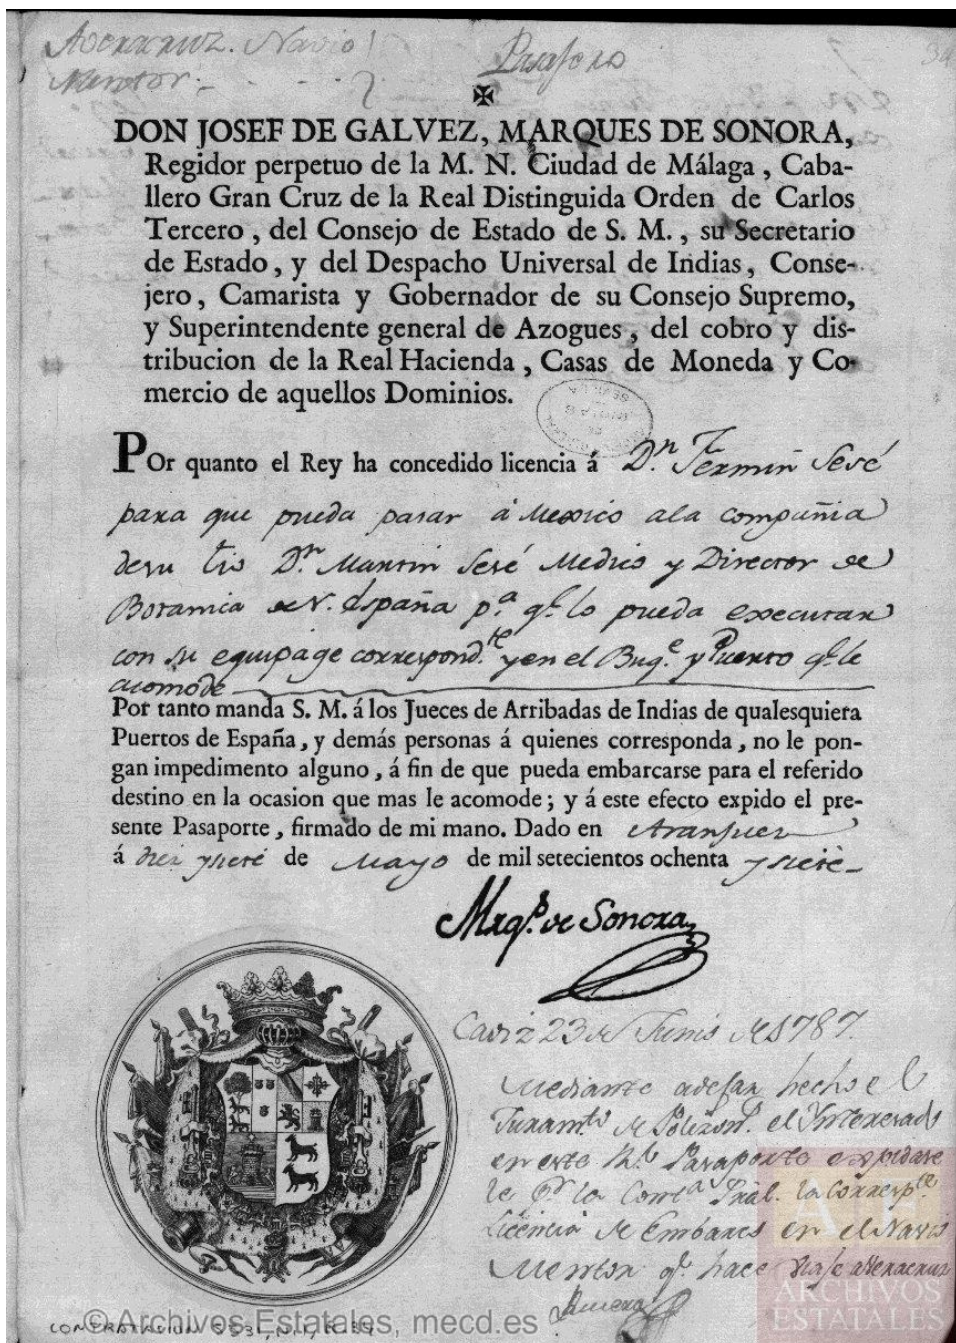 A Veracruz. Navio
Mentor
Pasagero
34
✠
DON JOSEF DE GALVEZ, MARQUES DE SONORA,
Regidor perpetuo de la M. N. Ciudad de Málaga, Caba-
llero Gran Cruz de la Real Distinguida Orden de Carlos
Tercero, del Consejo de Estado de S. M., su Secretario
de Estado, y del Despacho Universal de Indias, Conse-
jero, Camarista y Gobernador de su Consejo Supremo,
y Superintendente general de Azogues, del cobro y dis-
tribucion de la Real Hacienda, Casas de Moneda y Co-
mercio de aquellos Dominios.
POr quanto el Rey ha concedido licencia á Dn. Fermin Sesé
para que pueda pasar á Mexico ala compañia
desu tio Dn. Martin Sesé Medico y Director de
Botanica de N. España pa. qe. lo pueda executar
con su equipage correspondte. y en el Buqe. y Puerto qe. le
acomode
Por tanto manda S. M. á los Jueces de Arribadas de Indias de qualesquiera
Puertos de España, y demás personas á quienes corresponda, no le pon-
gan impedimento alguno, á fin de que pueda embarcarse para el referido
destino en la ocasion que mas le acomode; y á este efecto expido el pre-
sente Pasaporte, firmado de mi mano. Dado en Aranjuez
á diez y siete de Mayo de mil setecientos ochenta y siete
Marqs. de Sonora
Cadiz 23 de Junio de 1787.
Mediante adejar hecho el
Juramto. de Polizon el Ynteresado
en este Rl. Pasaporte expidase
le pr. la Conta. Pral. la correspte.
Licencia de Embarco en el Navio
Mentor qe. hace viaje aVeracruz
© Archivos Estatales, mecd.es
CONTRATACION
AE
ARCHIVOS
ESTATALES